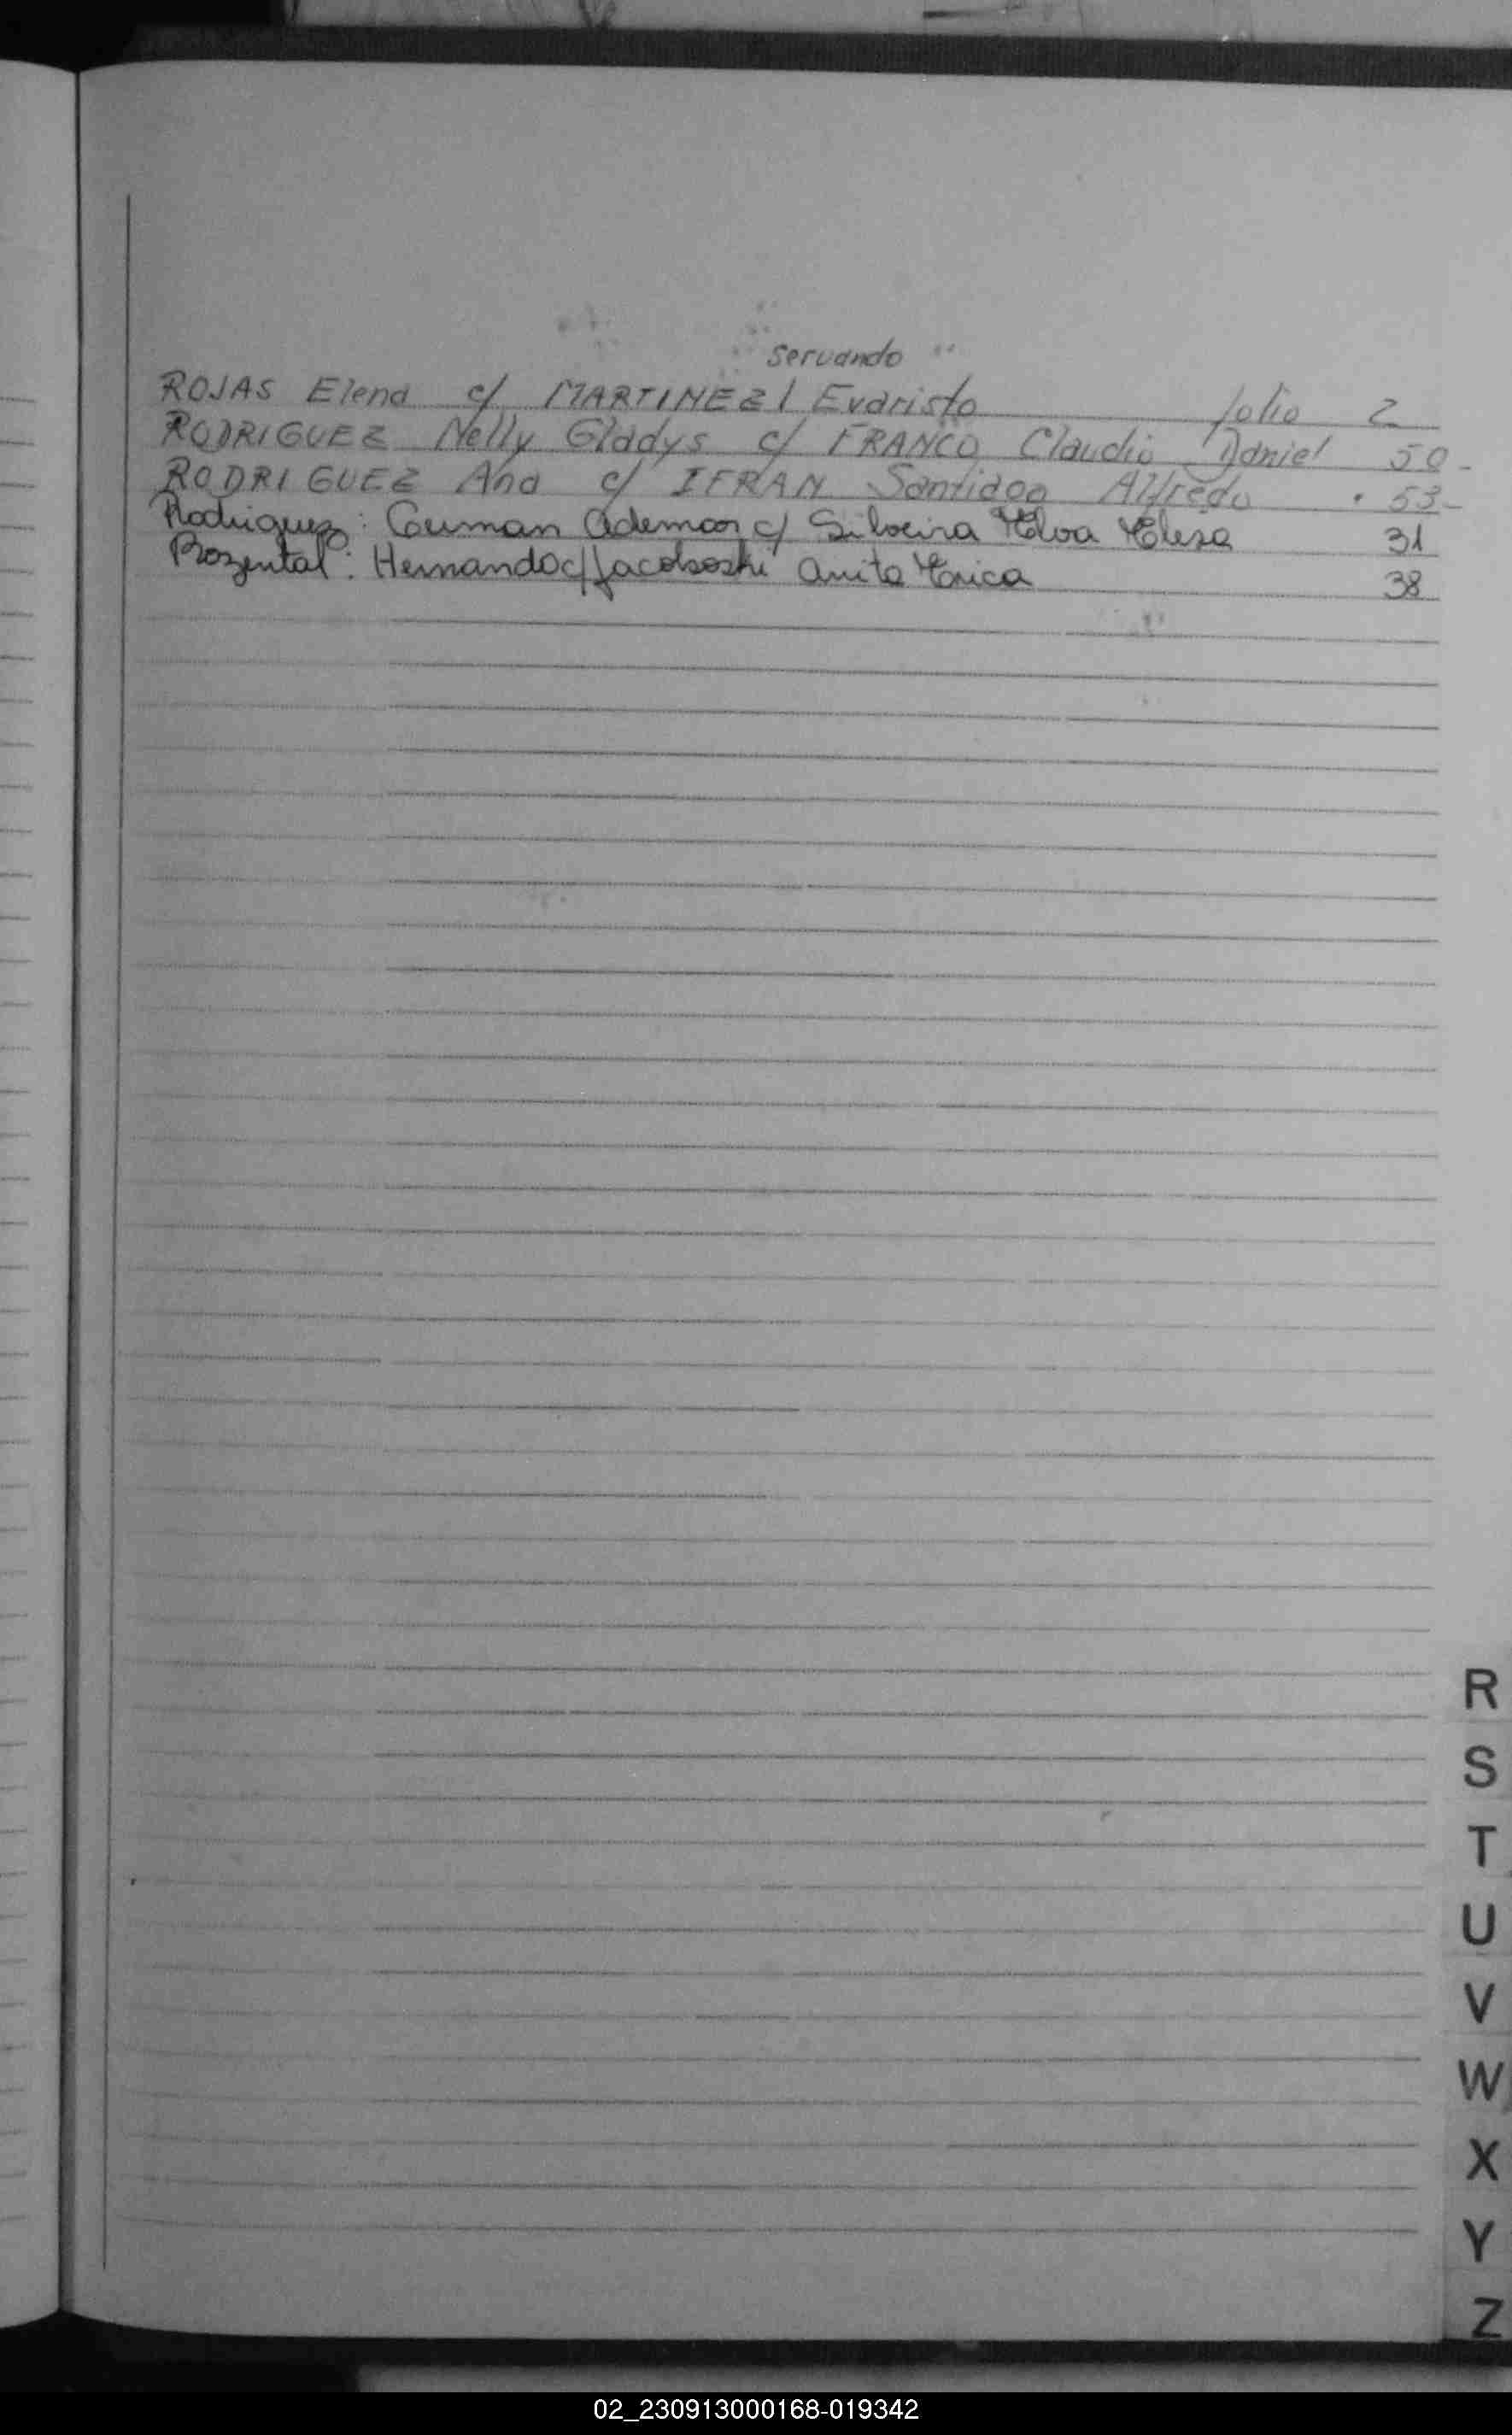 Servando
ROJAS Elena c/ MARTINEZ / Evaristo folio 2
RODRIGUEZ Nelly Gladys c/ FRANCO Claudio Daniel 50-
RODRIGUEZ Ana c/ IFRAN Santiago Alfredo " 53-
Rodriguez: German Ademar c/ Silveira Elva Elesa 31
Rozental: Hernando c/ Jacoboski Anita Erica 38
R
S
T
U
V
W
X
Y
Z
02_230913000168-019342